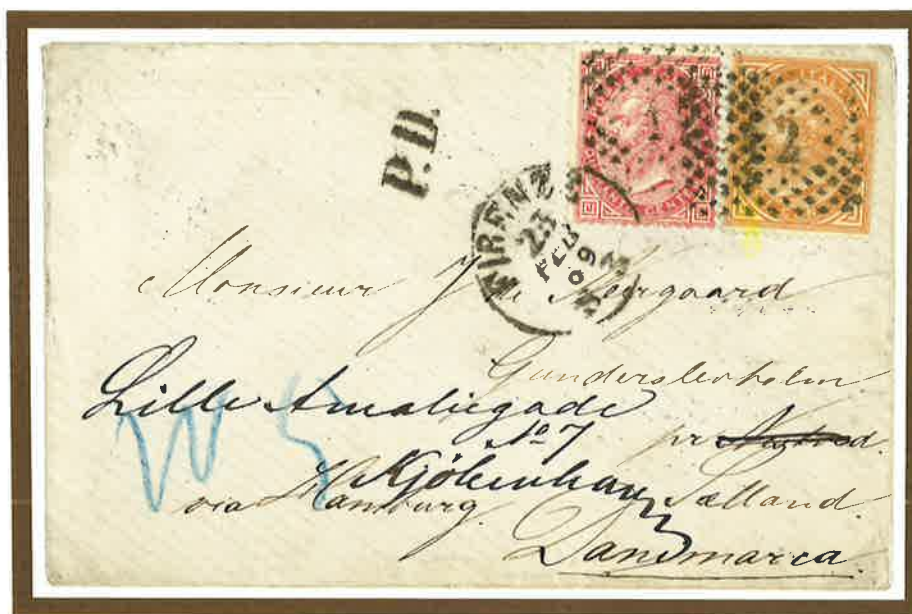 P.D.
FIRENZE
23
FEB
69
2
Monsieur J de Neergaard
Gunderslevholm
Lille Amaliegade
No 7
pr Næstved.
Kjöbenhavn
via Hamburg. Sælland.
Danimarca
W 5
3